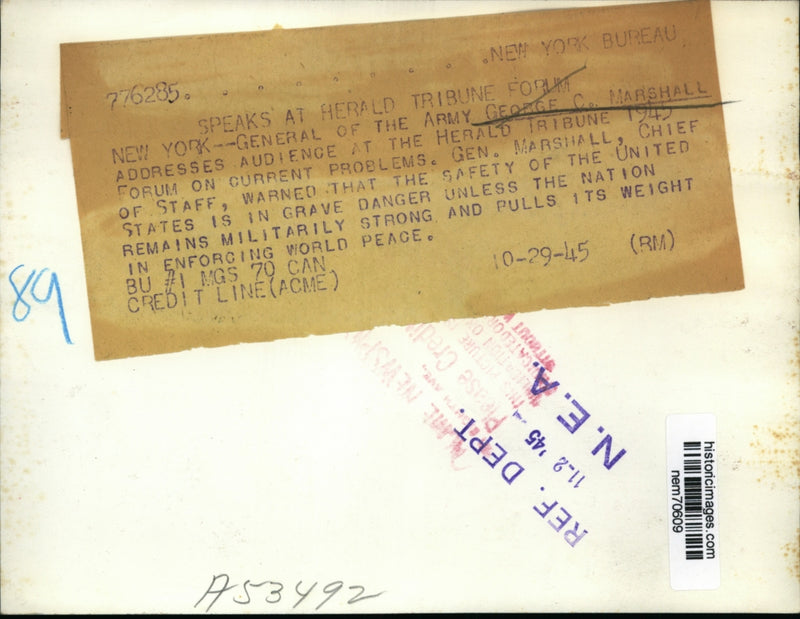 NEW YORK BUREAU
776285.
SPEAKS AT HERALD TRIBUNE FORUM
NEW YORK--GENERAL OF THE ARMY GEORGE C. MARSHALL
ADDRESSES AUDIENCE AT THE HERALD TRIBUNE 1945
FORUM ON CURRENT PROBLEMS. GEN. MARSHALL, CHIEF
OF STAFF, WARNED THAT THE SAFETY OF THE UNITED
STATES IS IN GRAVE DANGER UNLESS THE NATION
REMAINS MILITARILY STRONG AND PULLS ITS WEIGHT
IN ENFORCING WORLD PEACE.
BU #1 MGS 70 CAN
CREDIT LINE(ACME) 10-29-45 (RM)
89
Please Credit
REF. DEPT.
11-2 '45
N.E.A.
historicimages.com
nem70609
A53492